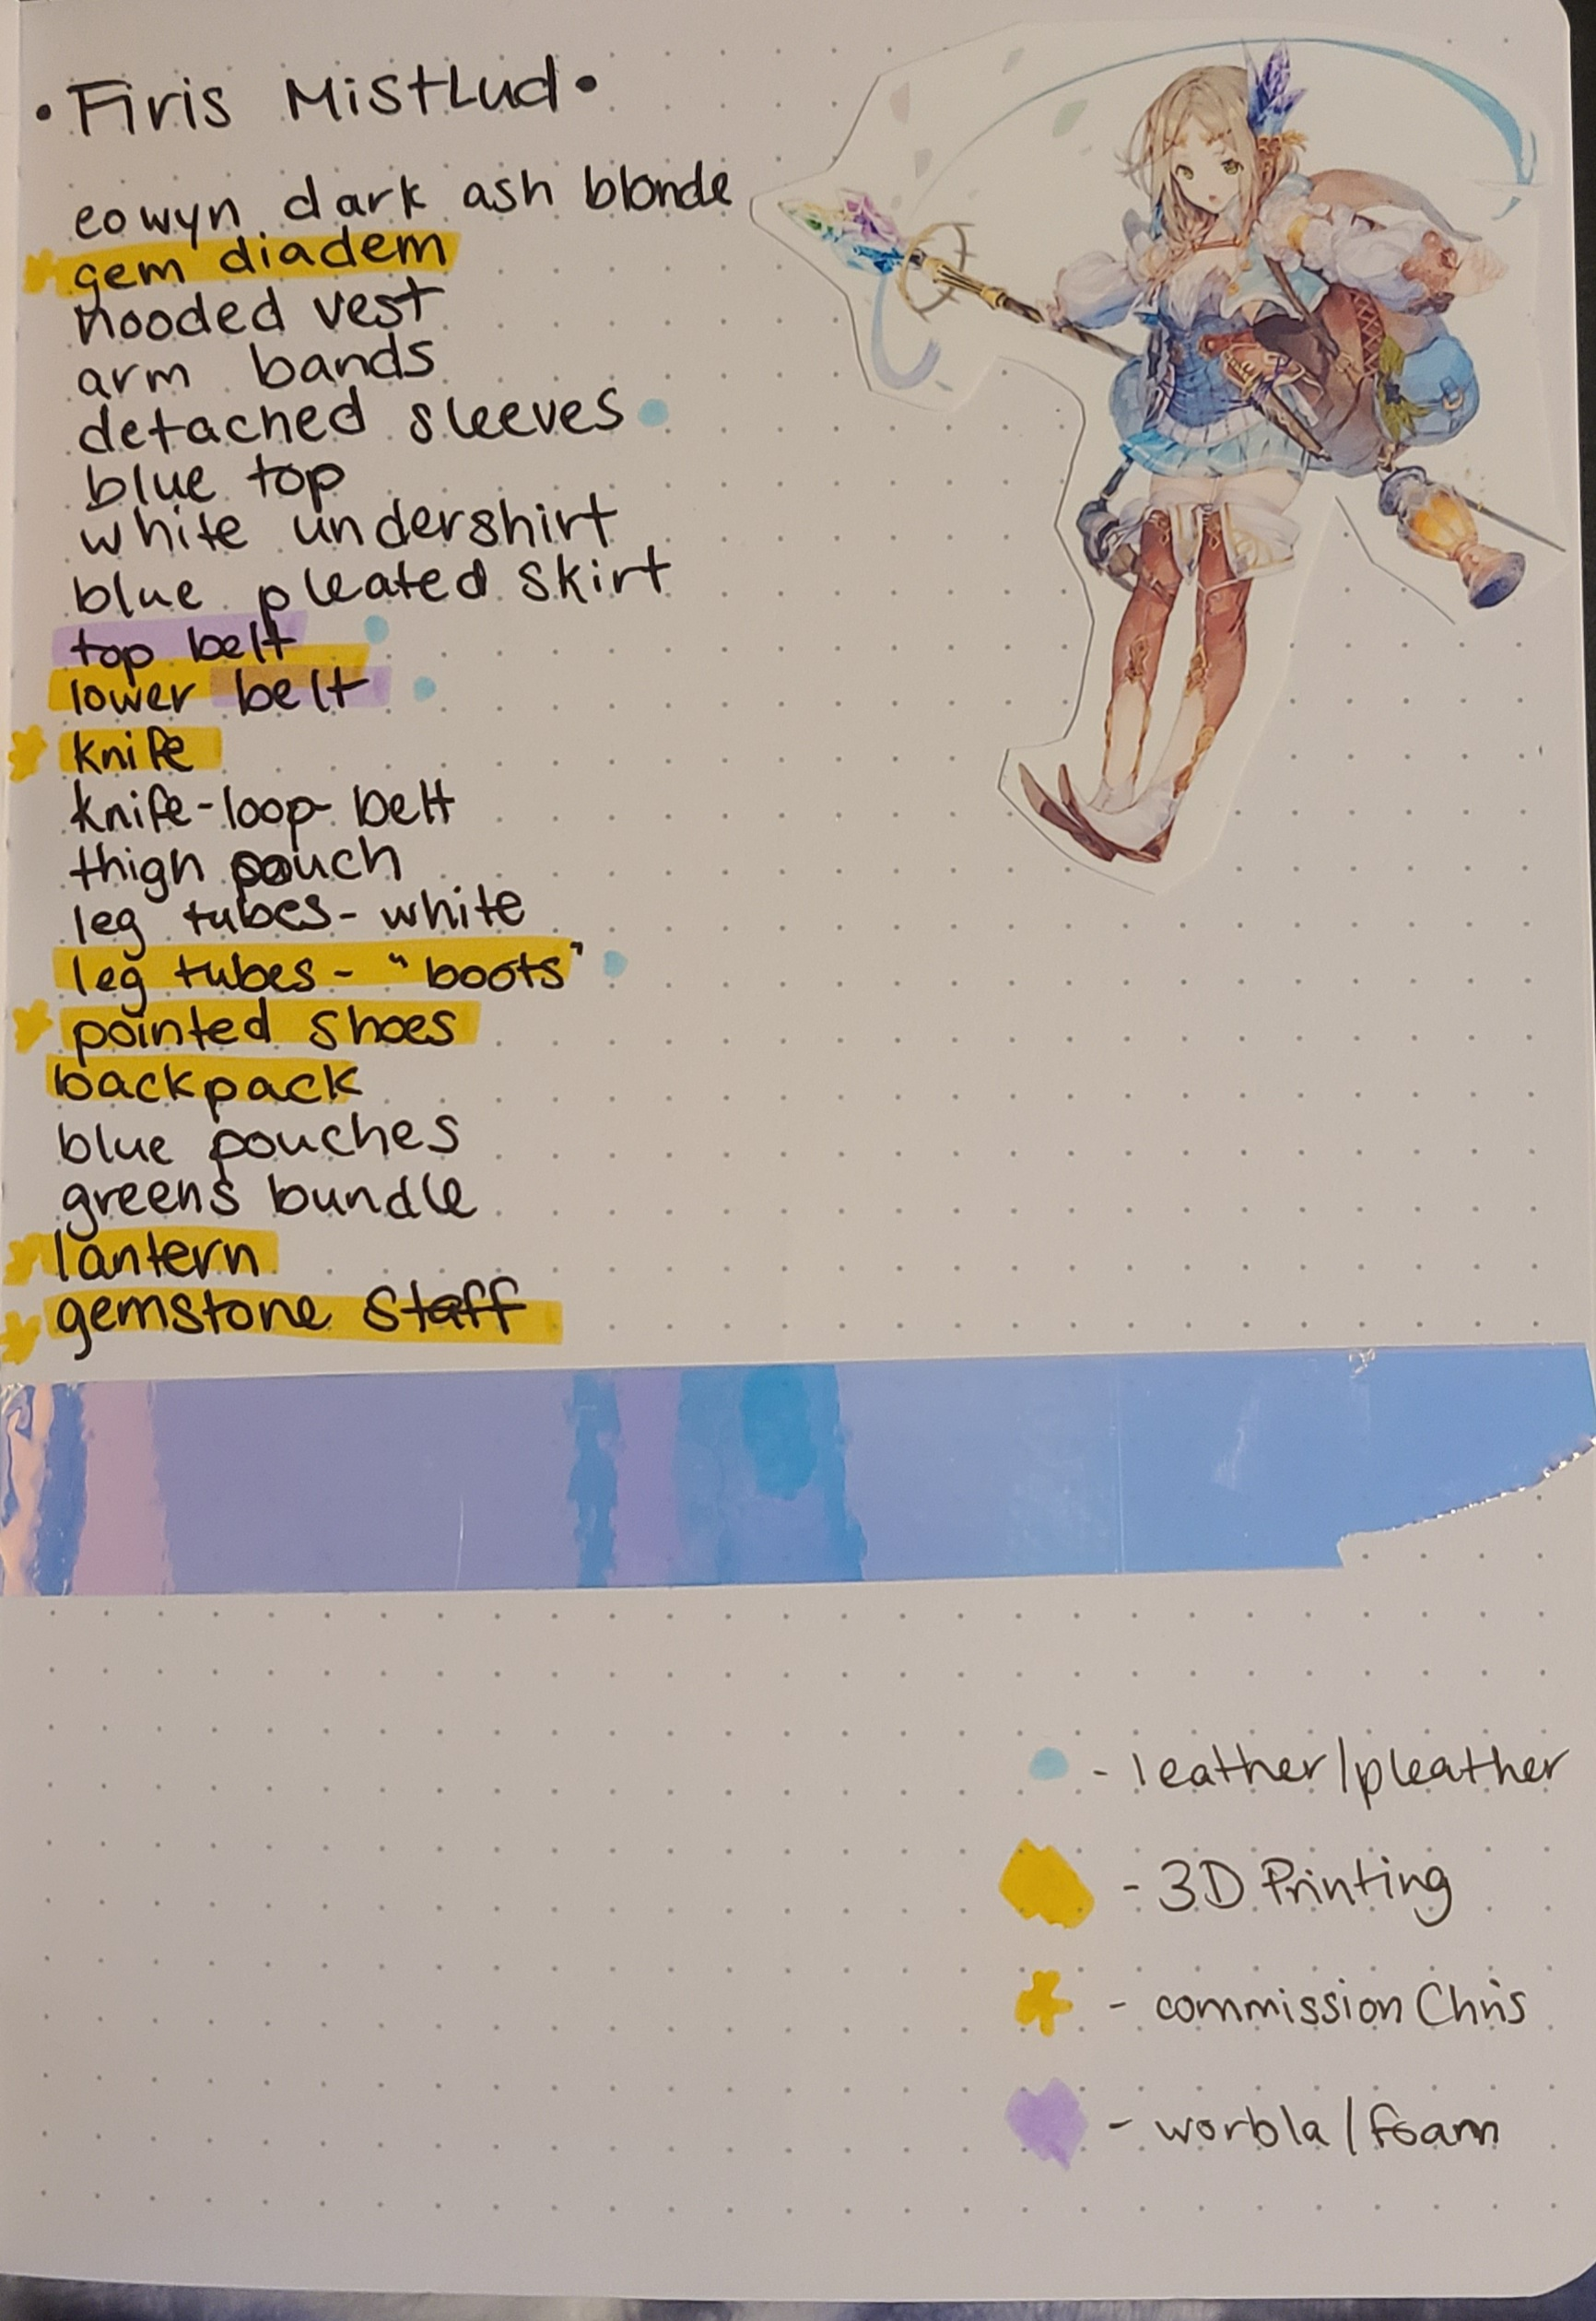 • Firis Mistlud •
eowyn dark ash blonde
gem diadem
hooded vest
arm bands
detached sleeves
blue top
white undershirt
blue pleated skirt
top belt
lower belt
knife
knife-loop belt
thigh pouch
leg tubes - white
leg tubes - "boots"
pointed shoes
backpack
blue pouches
greens bundle
lantern
gemstone staff
- leather/pleather
- 3D Printing
- commission Chris
- worbla/foam